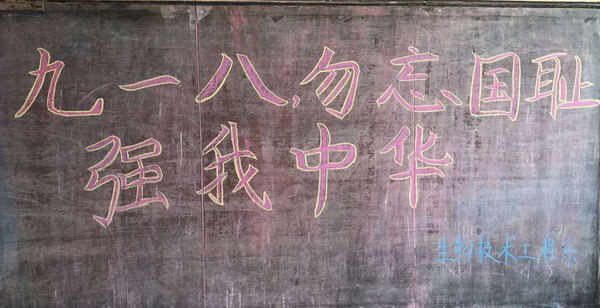 九一八,勿忘国耻
强我中华
生物技术工程系